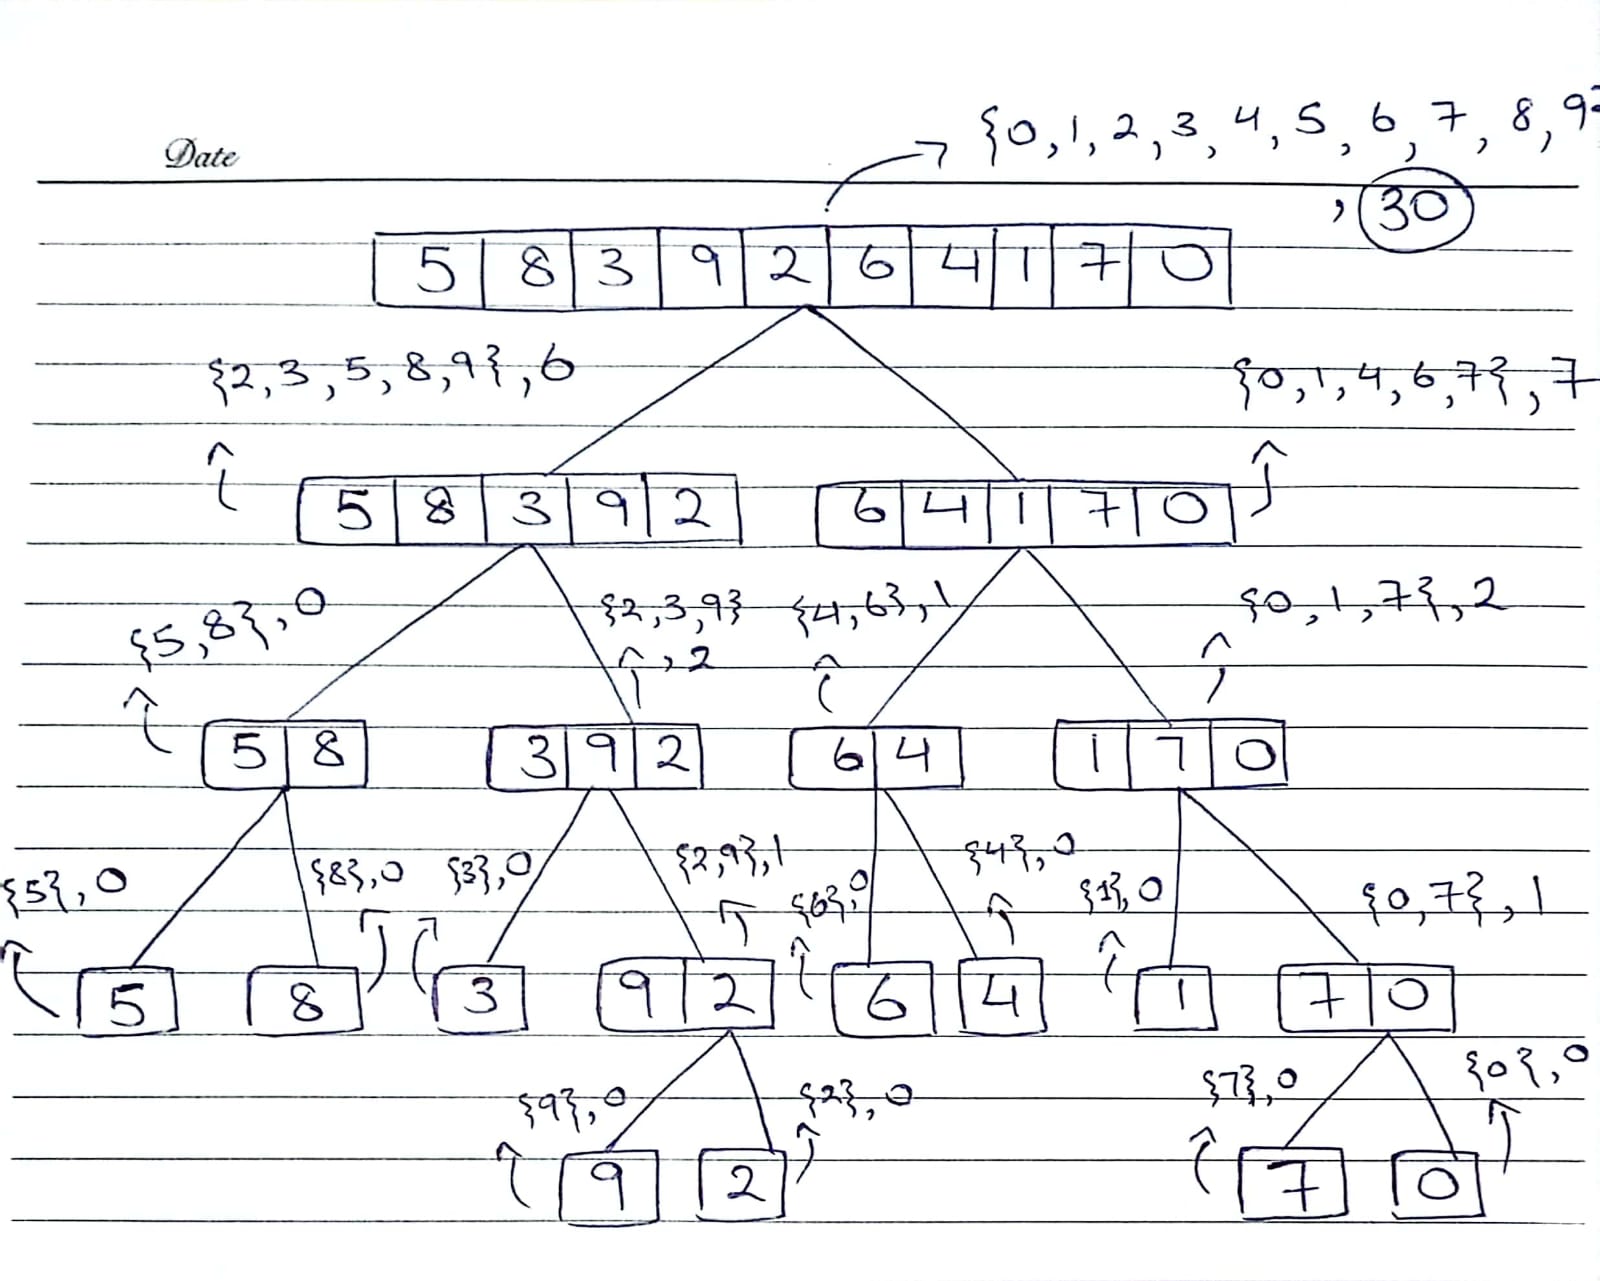 Date
{0,1,2,3,4,5,6,7,8,9}
, 30
5 8 3 9 2 6 4 1 7 0
{2,3,5,8,9},6 {0,1,4,6,7},7
5 8 3 9 2 6 4 1 7 0
{5,8},0 {2,3,9} {4,6},1 {0,1,7},2
,2
5 8 3 9 2 6 4 1 7 0
{5},0 {8},0 {3},0 {2,9},1 {6},0 {4},0 {1},0 {0,7},1
5 8 3 9 2 6 4 1 7 0
{9},0 {2},0 {7},0 {0},0
9 2 7 0